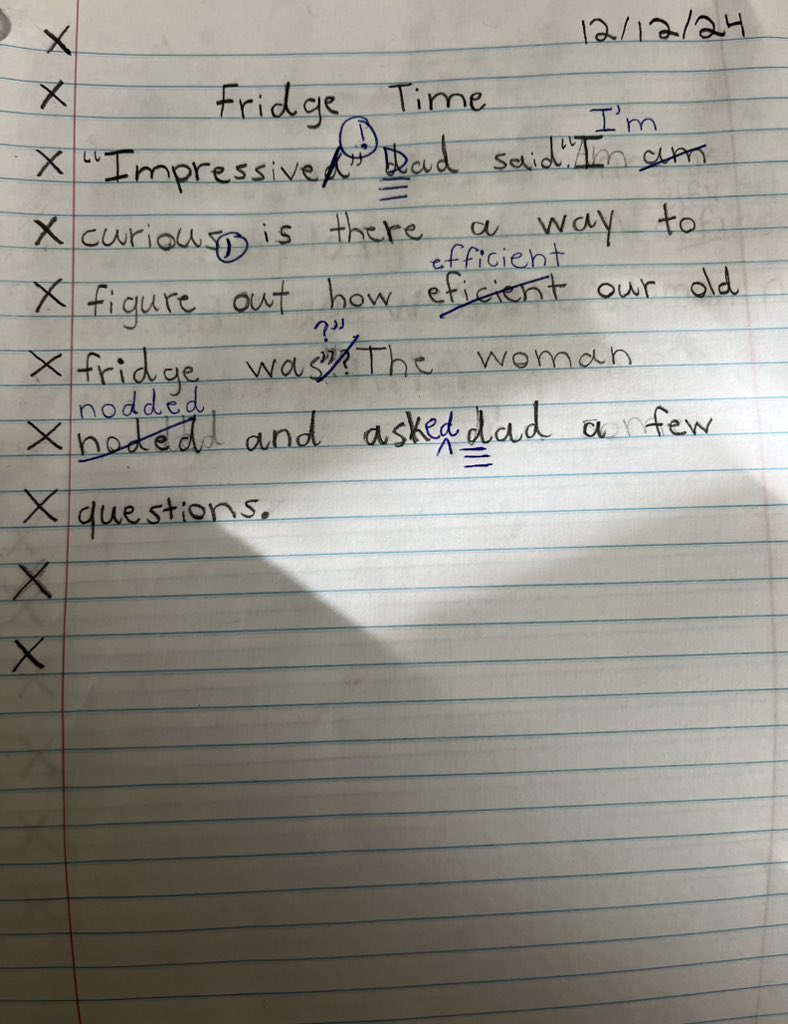 12/12/24
Fridge Time
I'm
"Impressive!" Dad said. "I am
curious, is there a way to
efficient
figure out how eficient our old
?"
fridge was"? The woman
nodded
noded and asked dad a few
questions.